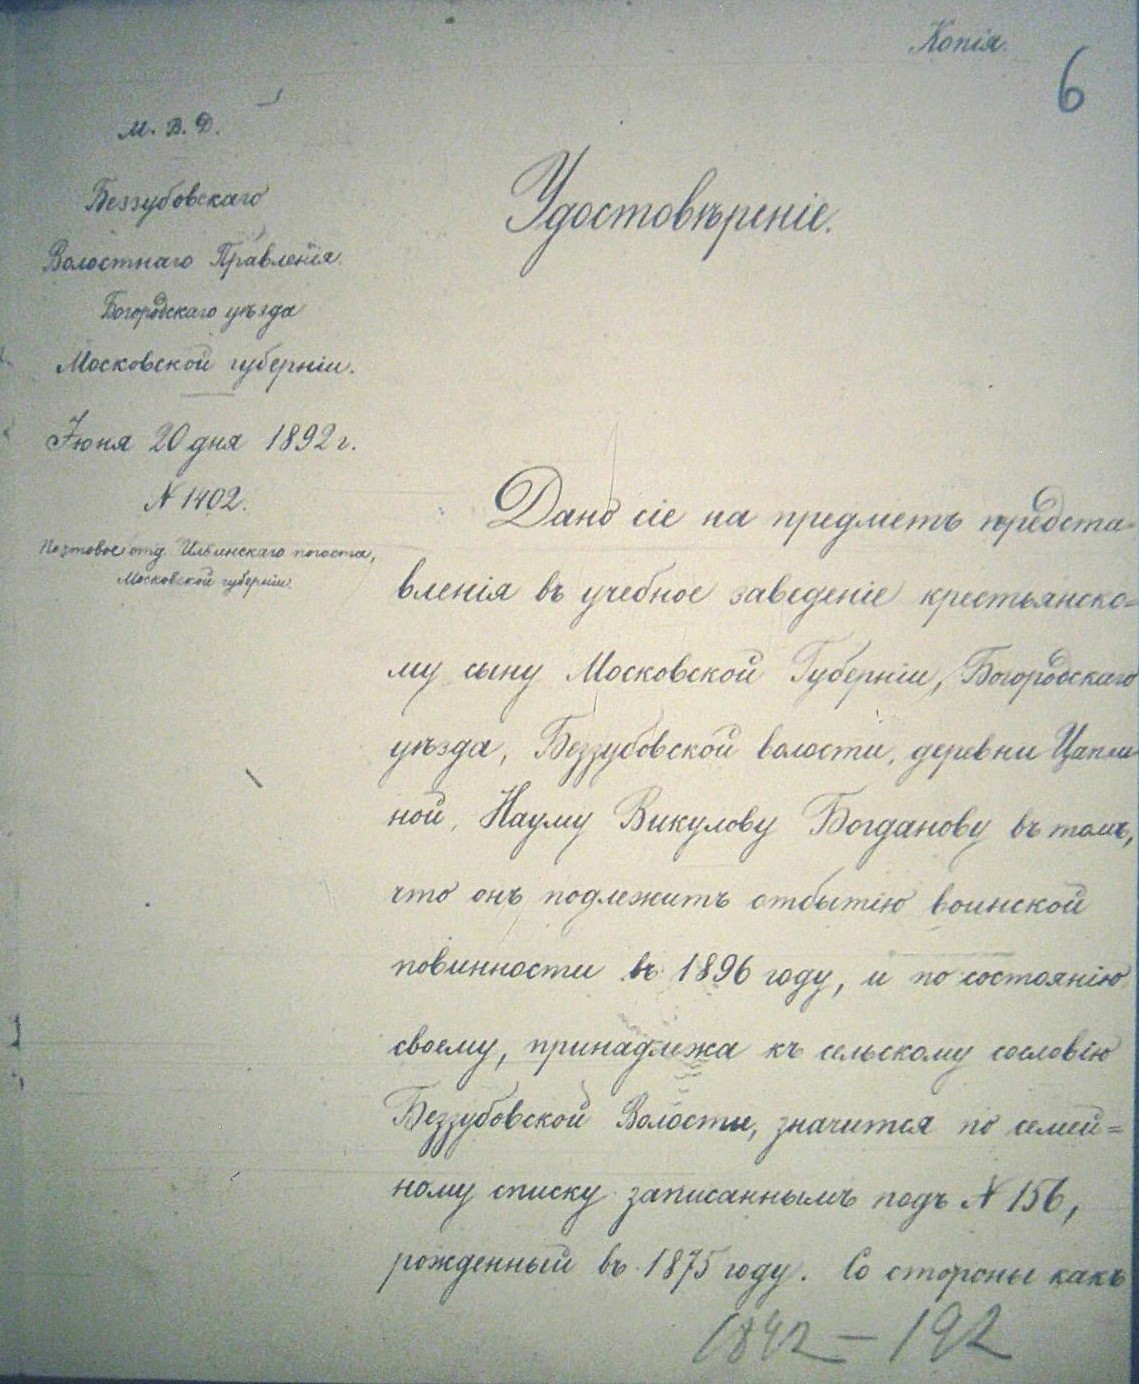 Копія.
6
М. В. Д.
Беззубовскаго
Волостнаго Правленія.
Богородскаго уѣзда
Московской губерніи.
Іюня 20 дня 1892 г.
№ 1402.
Почтовое отд. Ильинскаго погоста,
Московской губерніи.
Удостовѣреніе.
Дано сіе на предметъ предста=
вленія въ учебное заведеніе крестьянско=
му сыну Московской Губерніи, Богородскаго
уѣзда, Беззубовской волости, деревни Цапли=
ной, Науму Викулову Богданову въ томъ,
что онъ подлежитъ отбытію воинской
повинности въ 1896 году, и по состоянію
своему, принадлежа къ сельскому сословію
Беззубовской Волости, значится по семей=
ному списку записаннымъ подъ № 156,
рожденный въ 1875 году. Со стороны какъ
1842 — 192